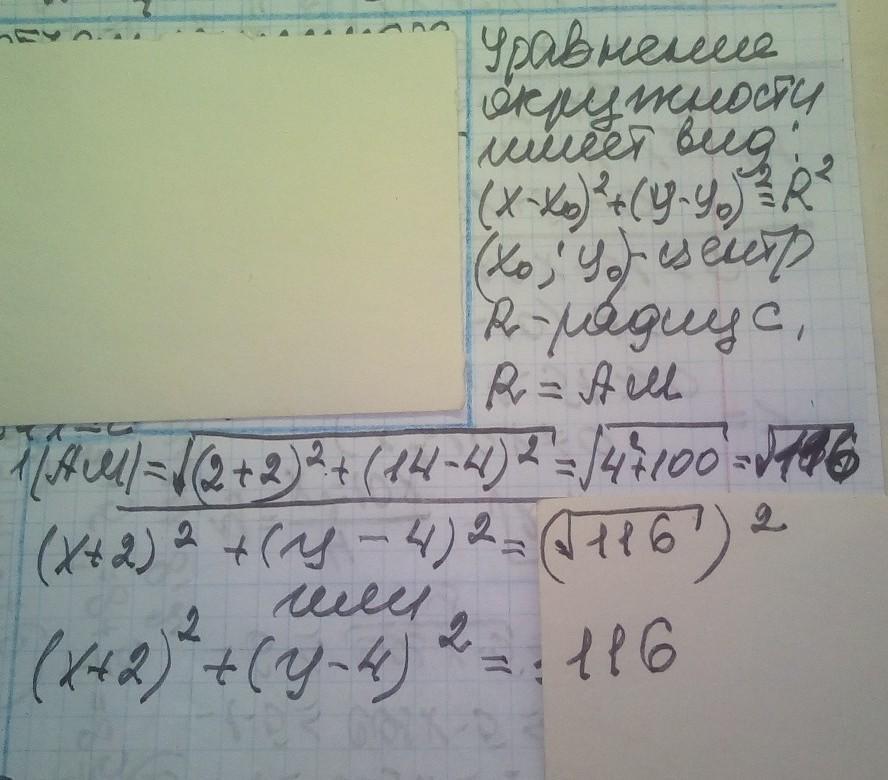 Уравнение
окружности
имеет вид:
(x-x₀)²+(y-y₀)²=R²
(x₀; y₀)-центр
R-радиус,
R = AM
|AM|=√(2+2)²+(14-4)²=√4²+100=√116
(x+2)²+(y-4)²=(√116)²
или
(x+2)²+(y-4)²=116